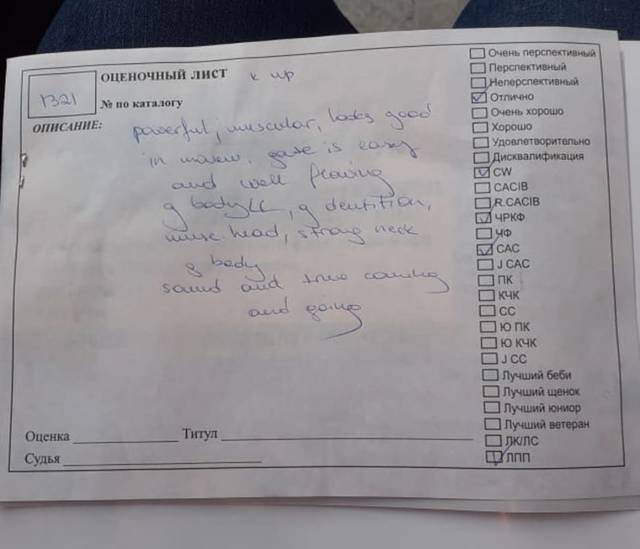 ОЦЕНОЧНЫЙ ЛИСТ
1321
№ по каталогу
ОПИСАНИЕ:
powerful, muscular, looks good
in is easy
and well
g body, g dentition,
head, strong neck
g body
sound and true coming
and going
Оценка
Титул
Судья
Очень перспективный
Перспективный
Неперспективный
Отлично
Очень хорошо
Хорошо
Удовлетворительно
Дисквалификация
CW
CACIB
R.CACIB
ЧРКФ
ЧФ
САС
J CAC
ПК
КЧК
СС
Ю ПК
Ю КЧК
J CC
Лучший беби
Лучший щенок
Лучший юниор
Лучший ветеран
ЛК/ЛС
ЛПП